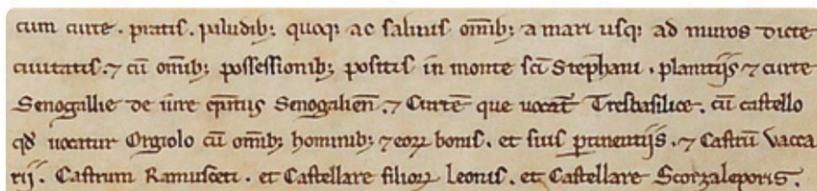 cum curte. pratis. paludib; quoq; ac salinis omib; a mari usq; ad muros dicte
ciuitatis. ⁊ cū omib; possessionib; positis in monte sc̄i Stephani. planitijs ⁊ curte
Senogallie de iure ep̄atus Senogalien̄. ⁊ Curtē que uocat̄ Tresbasilice. cū castello
qd̄ uocatur Orgiolo cū omib; hominib; ⁊ eoꝝ bonis. et suis ꝑtinentijs. ⁊ Castrū Vacca
rij. Castrum Ramusceti. et Castellare filioꝝ Leonis. et Castellare Scorzaleporis.